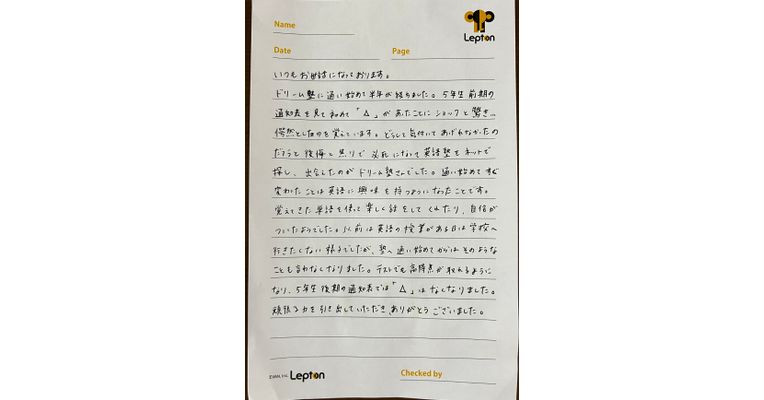 Name
Lepton
Date
Page
いつもお世話になっております。
ドリーム塾に通い始めて半年が経ちました。5年生前期の
通知表を見て初めて「△」があったことにショックと驚き…
愕然としたのを覚えています。どうして気付いてあげれなかったの
だろうと後悔と焦りで必死になって英語塾をネットで
探し、出会したのがドリーム塾さんでした。通い始めてすぐ
変わったことは英語に興味を持つようになったことです。
覚えてきた単語を使って楽しく話をしてくれたり、自信が
ついたようでした。以前は英語の授業がある日は学校へ
行きたくない様子でしたが、塾へ通い始めてからはそのような
ことも言わなくなりました。テストでも高得点が取れるように
なり、5年生後期の通知表では「△」はなくなりました。
頑張る力を引き出していただき、ありがとうございました。
EVAN, Inc. Lepton
Checked by